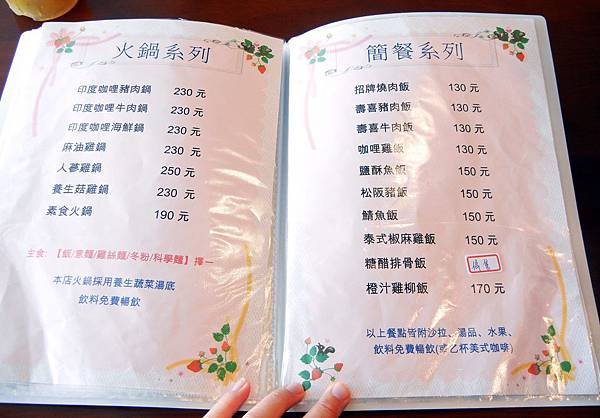 火鍋系列
印度咖哩豬肉鍋 230 元
印度咖哩牛肉鍋 230 元
印度咖哩海鮮鍋 230 元
麻油雞鍋 230 元
人蔘雞鍋 250 元
養生菇雞鍋 230 元
素食火鍋 190 元
主食:【飯/意麵/雞絲麵/冬粉/科學麵】擇一
本店火鍋採用養生蔬菜湯底
飲料免費暢飲
簡餐系列
招牌燒肉飯 130 元
壽喜豬肉飯 130 元
壽喜牛肉飯 130 元
咖哩雞飯 130 元
鹽酥魚飯 150 元
松阪豬飯 150 元
鯖魚飯 150 元
泰式椒麻雞飯 150 元
糖醋排骨飯
橙汁雞柳飯 170 元
以上餐點皆附沙拉、湯品、水果、
飲料免費暢飲(或乙杯美式咖啡)